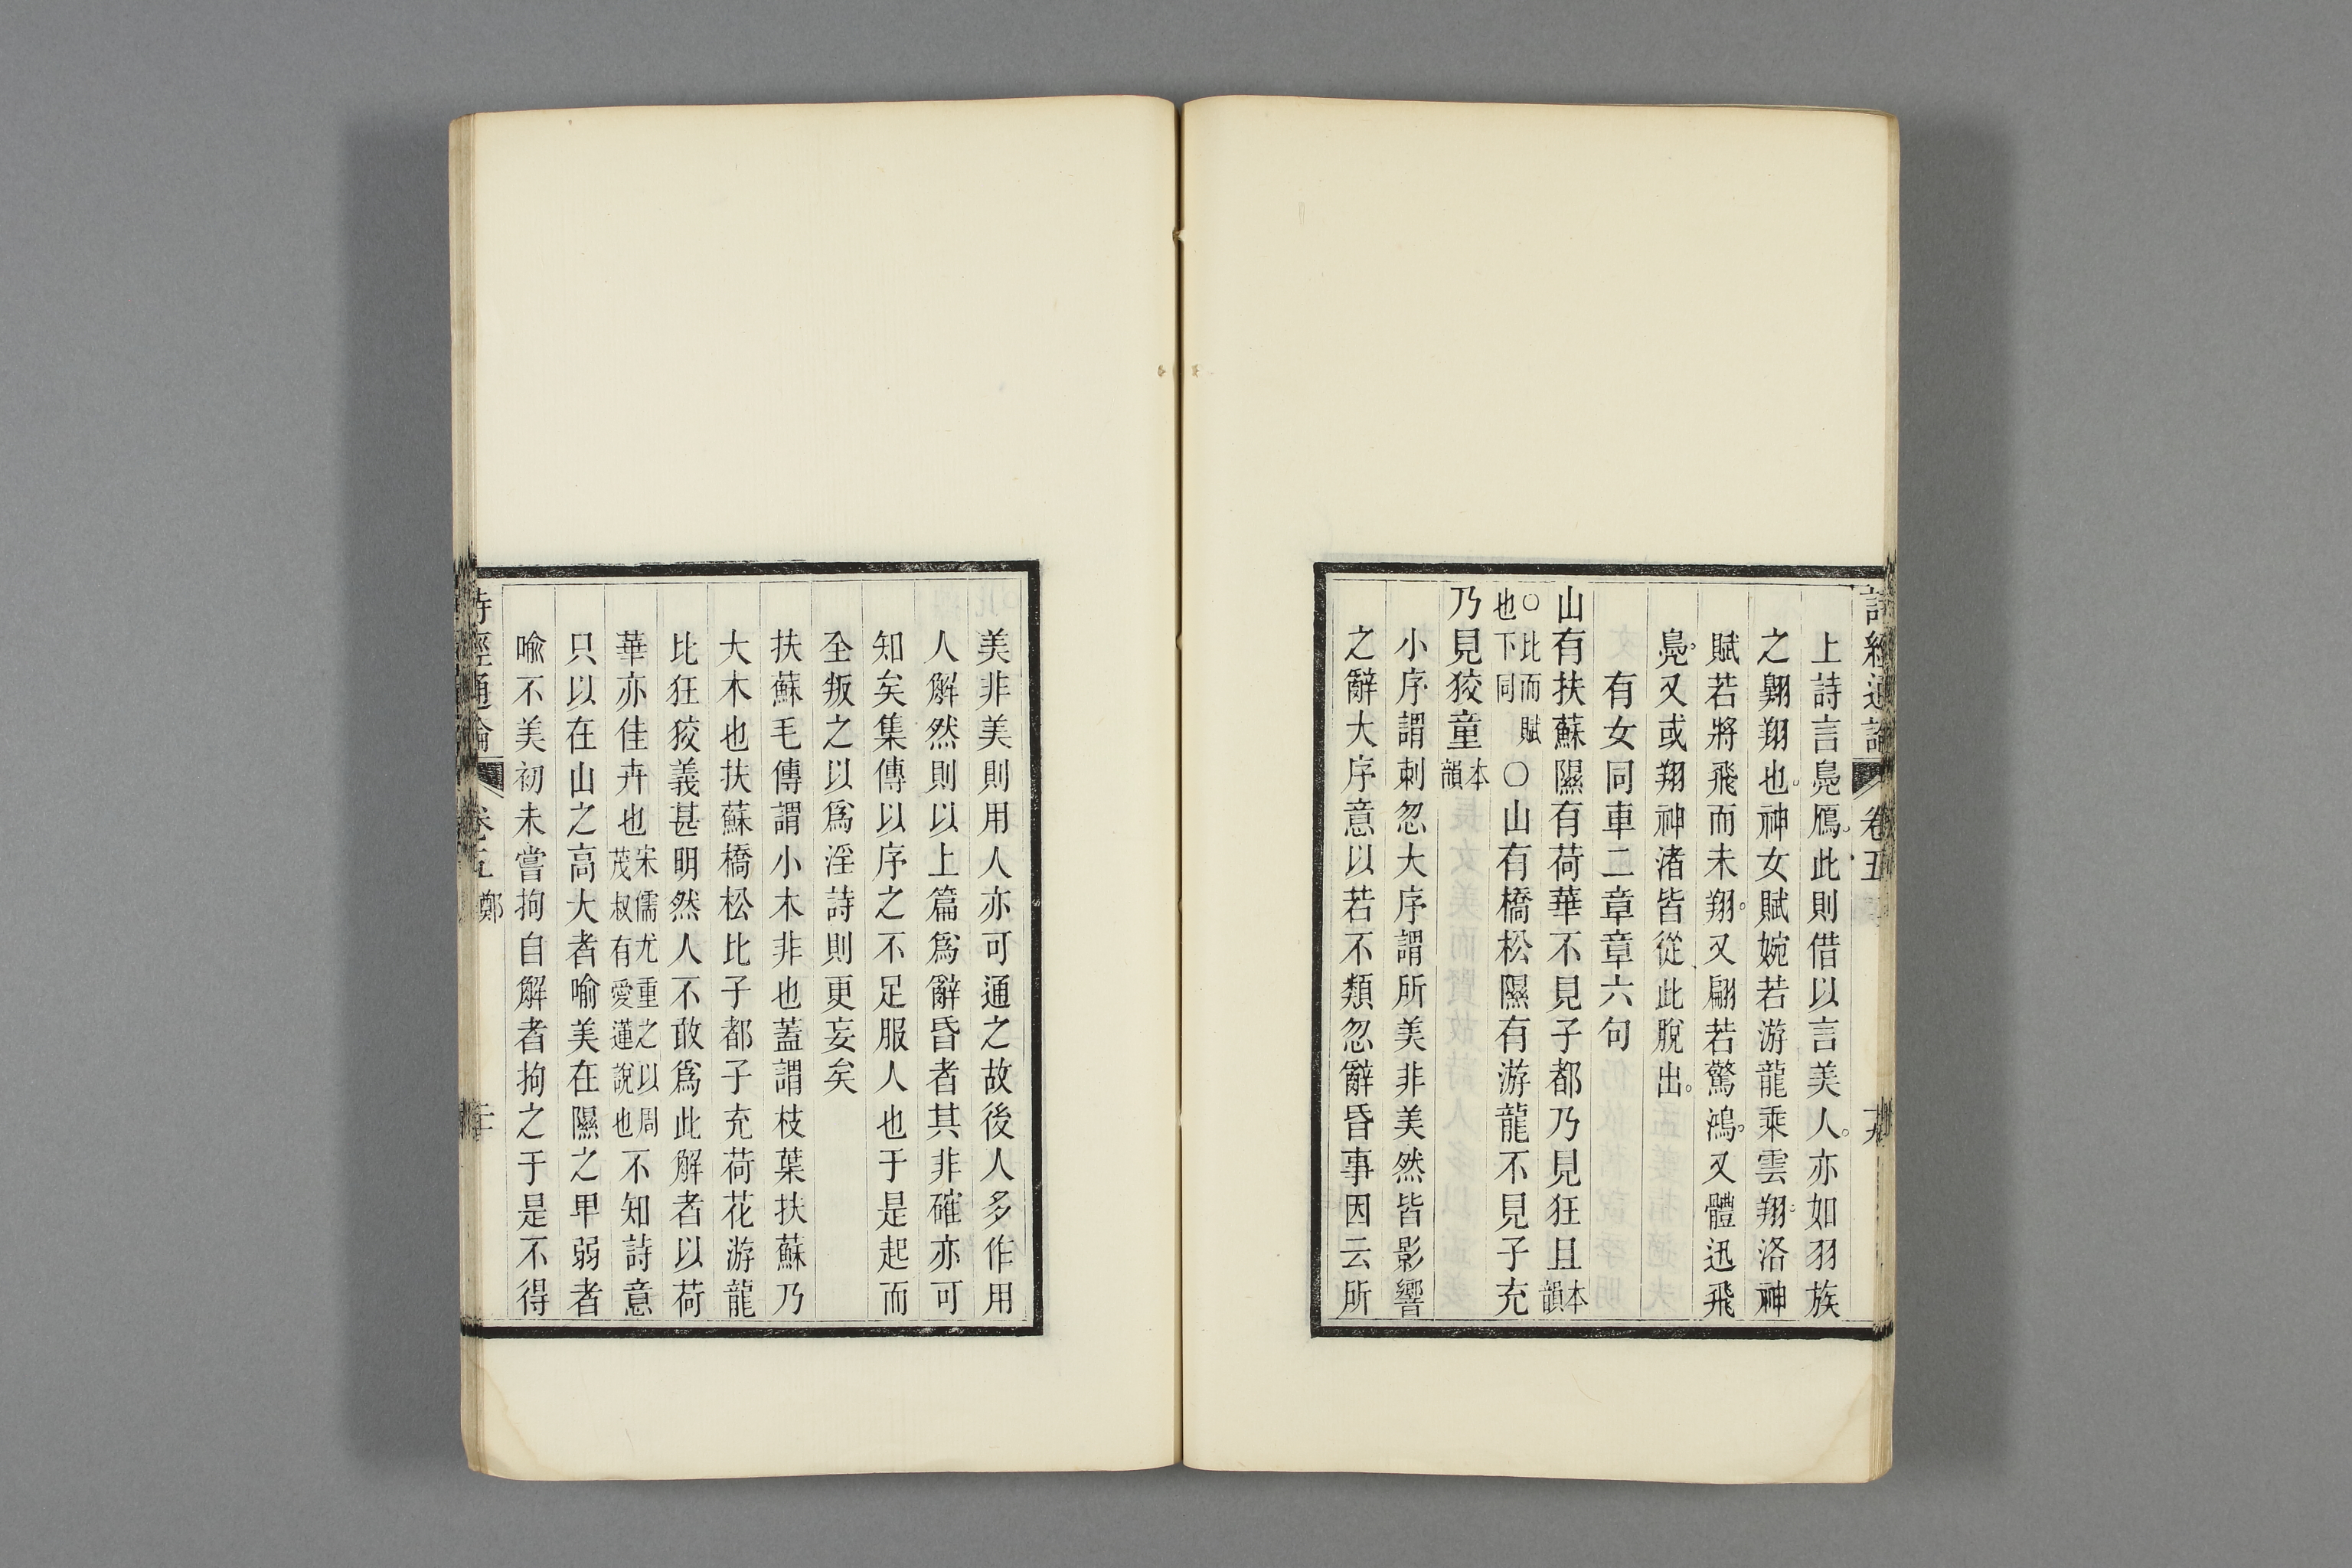 詩經通論 卷五 十九
上詩言鳧鴈此則借以言美人亦如羽族
之翱翔也神女賦婉若游龍乘雲翔洛神
賦若將飛而未翔又翩若驚鴻又體迅飛
鳧又或翔神渚皆從此脫出
有女同車二章章六句
山有扶蘇隰有荷華不見子都乃見狂且本韻
○比而賦也下同○山有橋松隰有游龍不見子充
乃見狡童本韻
小序謂刺忽大序謂所美非美然皆影響
之辭大序意以若不類忽辭昏事因云所
美非美則用人亦可通之故後人多作用
人解然則以上篇爲辭昏者其非確亦可
知矣集傳以序之不足服人也于是起而
全叛之以爲淫詩則更妄矣
扶蘇毛傳謂小木非也蓋謂枝葉扶蘇乃
大木也扶蘇橋松比子都子充荷花游龍
比狂狡義甚明然人不敢爲此解者以荷
華亦佳卉也宋儒尤重之以周茂叔有愛蓮說也不知詩意
只以在山之高大者喻美在隰之卑弱者
喻不美初未嘗拘自解者拘之于是不得
詩經通論 卷五 鄭 二十